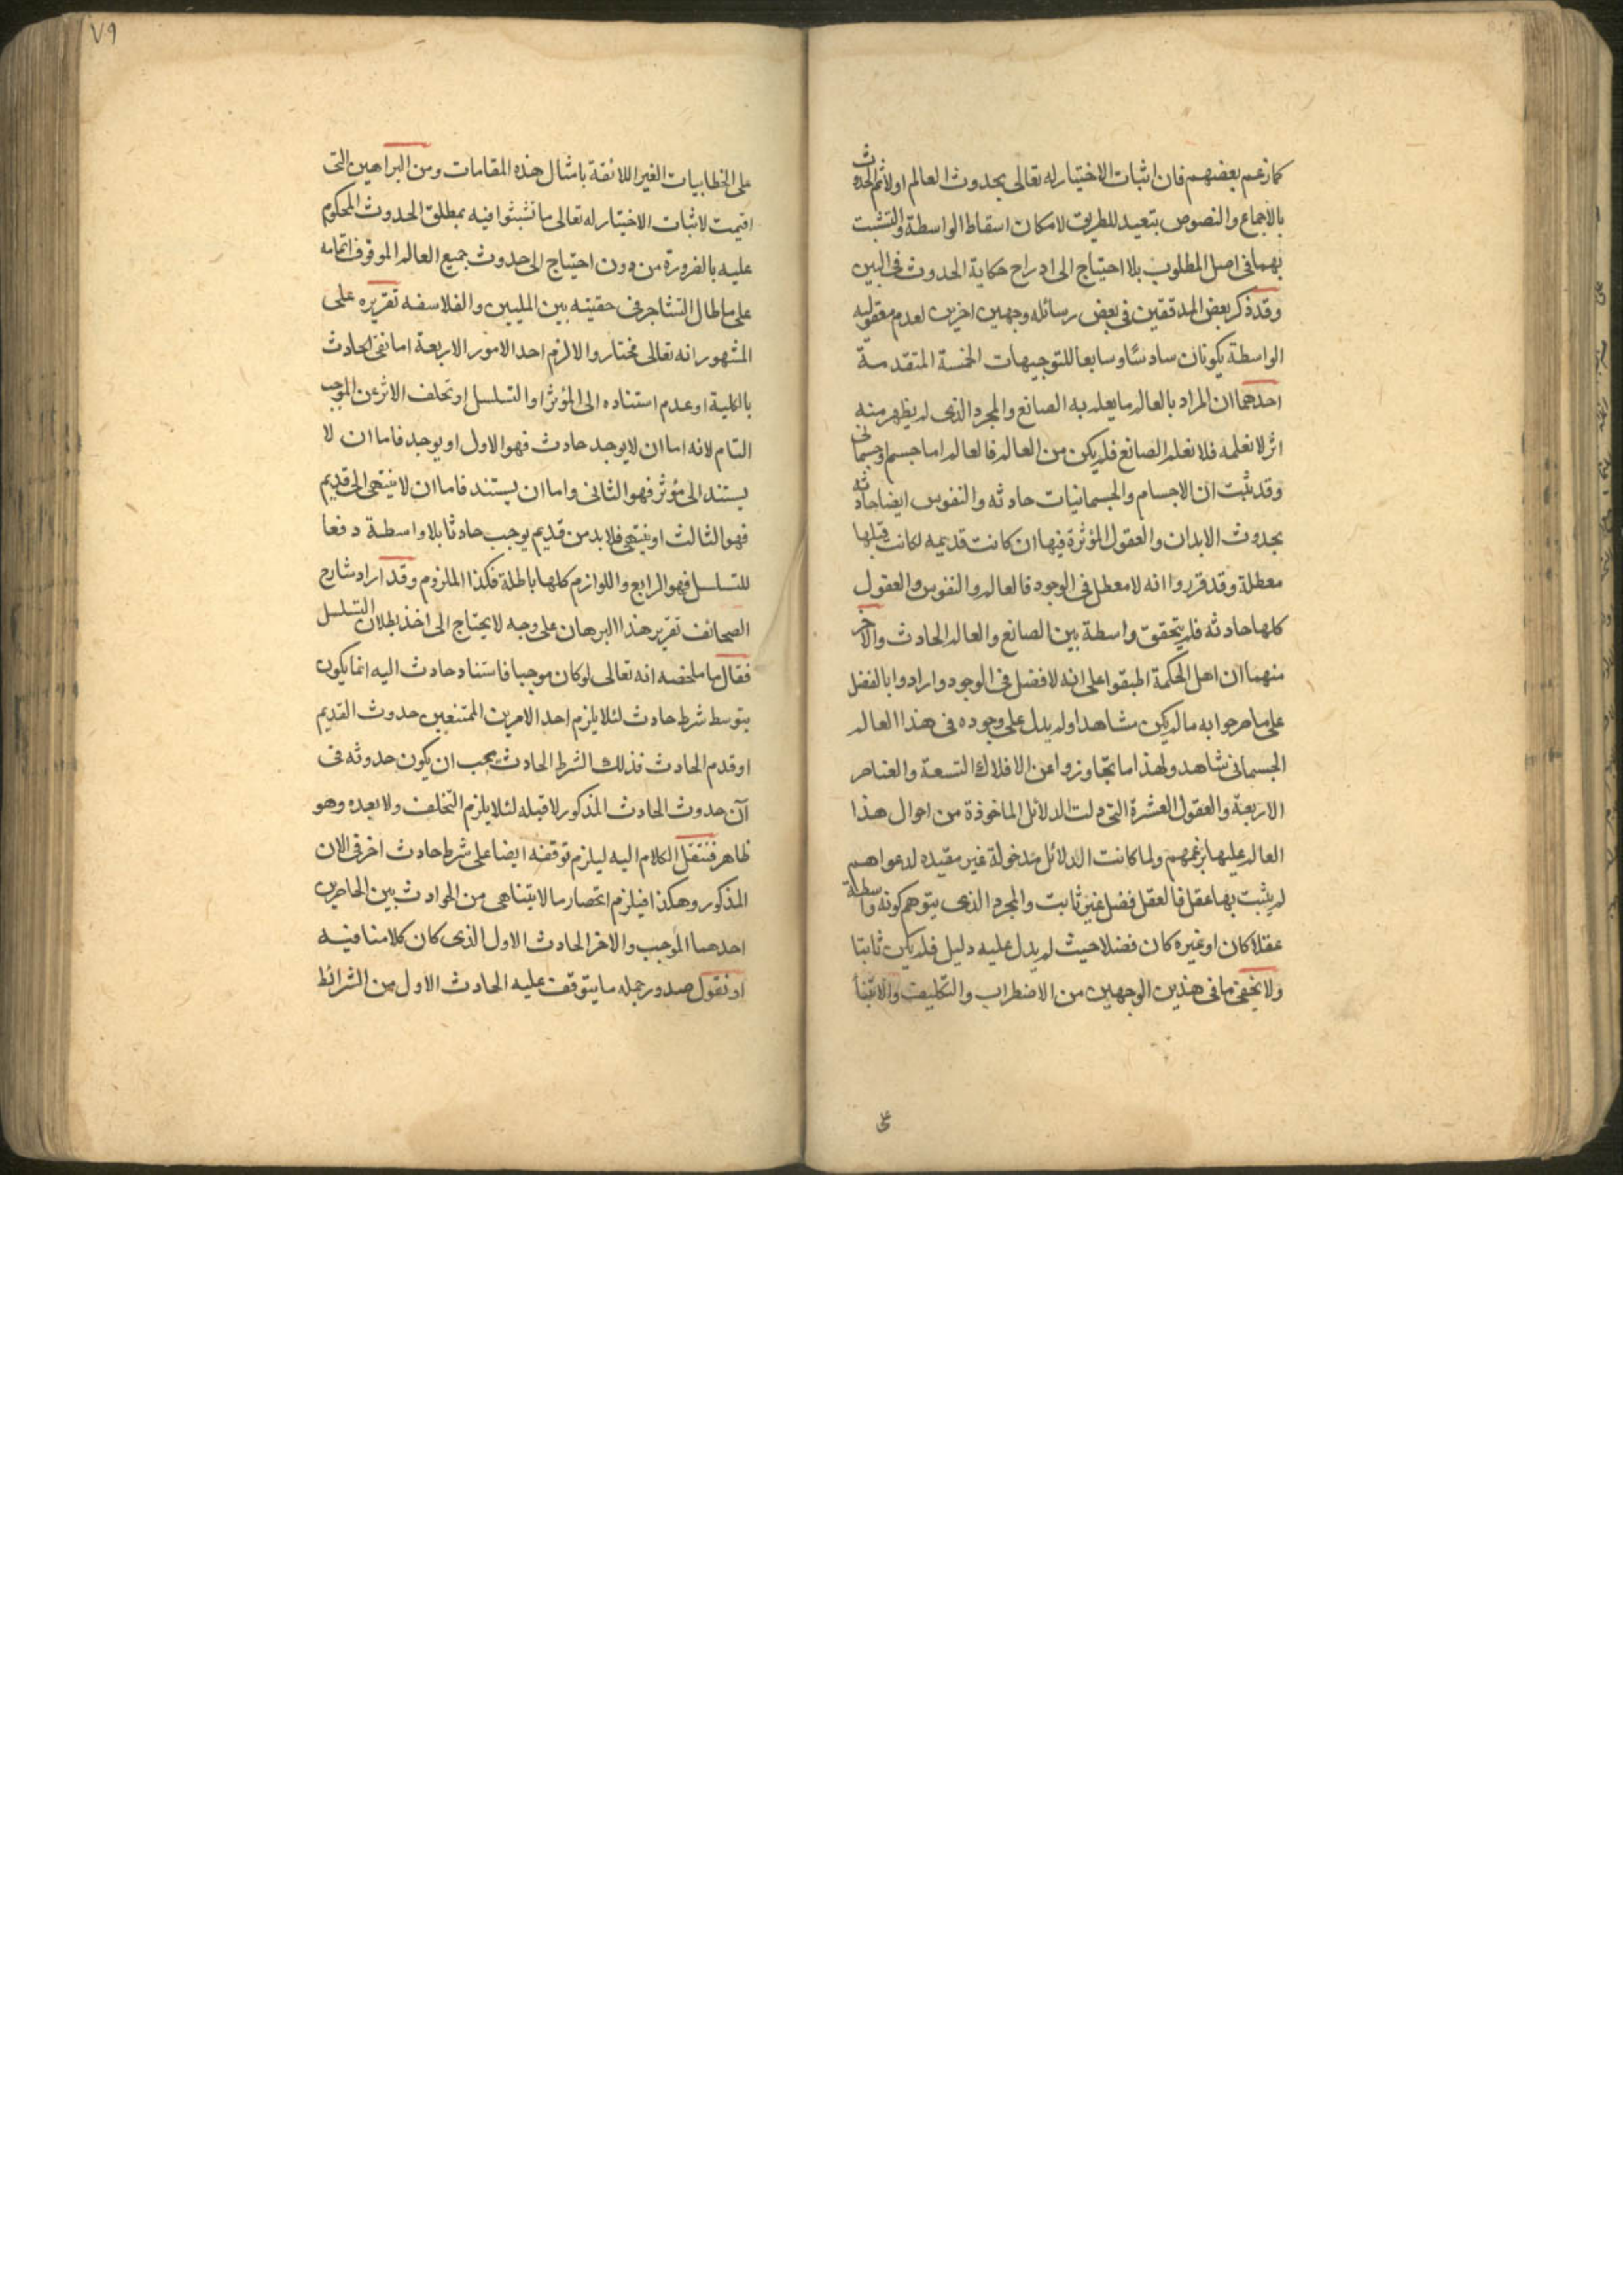 كما زعم بعضهم فان اثبات الاختيار له تعالى بحدوث العالم اولا ثم الحدوث
بالاجماع والنصوص بتعيد للطريق لامكان اسقاط الواسطة والتشبث
بهما فى اصل المطلوب بلا احتياج الى ادراج حكاية الحدوث فى البين
وقد ذكر بعض المدققين فى بعض رسائله وجهين اخرين لعدم معقوليه
الواسطة يكونان سادسا وسابعا للتوجيهات الخمسة المتقدمة
احدهما ان المراد بالعالم ما يعلم به الصانع والمجرد الذى لم يظهر منه
اثر لا نعلمه فلا نعلم الصانع فلم يكن من العالم فالعالم اما جسم او جسمانى
وقد ثبت ان الاجسام والجسمانيات حادثه والنفوس ايضا حادثه
بحدوث الابدان والعقول المؤثرة فيها ان كانت قديمه لكانت قبلها
معطلة وقد قرروا انه لا معطل فى الوجود فالعالم والنفوس والعقول
كلها حادثه فلم يتحقق واسطة بين الصانع والعالم الحادث والاخر
منهما ان اهل الحكمة اطبقوا على انه لا فضل فى الوجود وارادوا بالفضل
على ما صرحوا به ما لم يكن مشاهدا ولم يدل على وجوده فى هذا العالم
الجسمانى شاهد ولهذا ما تجاوزوا عن الافلاك التسعة والعناصر
الاربعة والعقول العشرة التى دلت الدلائل الماخوذة من احوال هذا
العالم عليها بزعمهم ولما كانت الدلائل مدخولة غير مفيده لدعواهم
لم يثبت بها عقل فالعقل فضل غير ثابت والمجرد الذى يتوهم كونه واسطة
عقلا كان او غيره كان فضلا حيث لم يدل عليه دليل فلم يكن ثابتا
ولا يخفى ما فى هذين الوجهين من الاضطراب والتكليف والابتنا
على
٧٩
على الخطابيات الغير اللائقة بامثال هذه المقامات ومن البراهين التى
اقيمت لاثبات الاختيار له تعالى ما تشبثوا فيه بمطلق الحدوث المحكوم
عليه بالضرورة من دون احتياج الى حدوث جميع العالم الموقوف اتمامه
على ما طال التشاجر فى حقيته بين المليين والفلاسفه تقريره على
المشهور انه تعالى مختار والا لزم احد الامور الاربعة اما نفى الحادث
بالكلية او عدم استناده الى المؤثر او التسلسل او تخلف الاثر عن الموجب
التام لانه اما ان لا يوجد حادث فهو الاول او يوجد فاما ان لا
يستند الى مؤثر فهو الثانى واما ان يستند فاما ان لا ينتهى الى قديم
فهو الثالث او ينتهى فلا بد من قديم يوجب حادثا بلا واسطة دفعا
للتسلسل فهو الرابع واللوازم كلها باطلة فكذا الملزوم وقد اراد شارح
الصحائف تقرير هذا البرهان على وجه لا يحتاج الى اخذ بطلان التسلسل
فقال ما ملخصه انه تعالى لو كان موجبا فاستناد حادث اليه انما يكون
بتوسط شرط حادث لئلا يلزم احد الامرين الممتنعين حدوث القديم
او قدم الحادث فذلك الشرط الحادث يجب ان يكون حدوثه فى
آن حدوث الحادث المذكور لا قبله لئلا يلزم التخلف ولا بعده وهو
ظاهر فننقل الكلام اليه ليلزم توقفه ايضا على شرط حادث اخر فى الان
المذكور وهكذا فيلزم انحصار ما لا يتناهى من الحوادث بين الحاصرين
احدهما الموجب والاخر الحادث الاول الذى كان كلامنا فيه
او نقول صدور جمله ما يتوقف عليه الحادث الاول من الشرائط